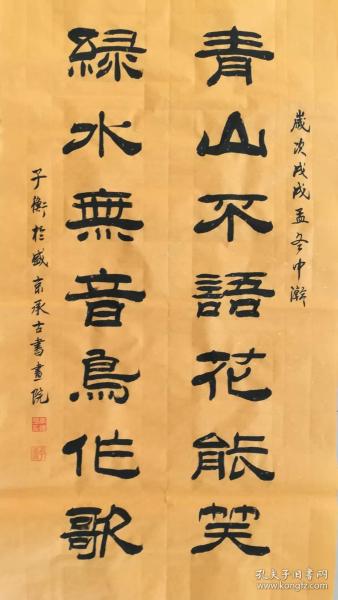 歲次戊戌孟冬中澣
青山不語花能笑
綠水無音鳥作歌
子衡於盛京承古書畫院
孔夫子旧书网
www.kongfz.com